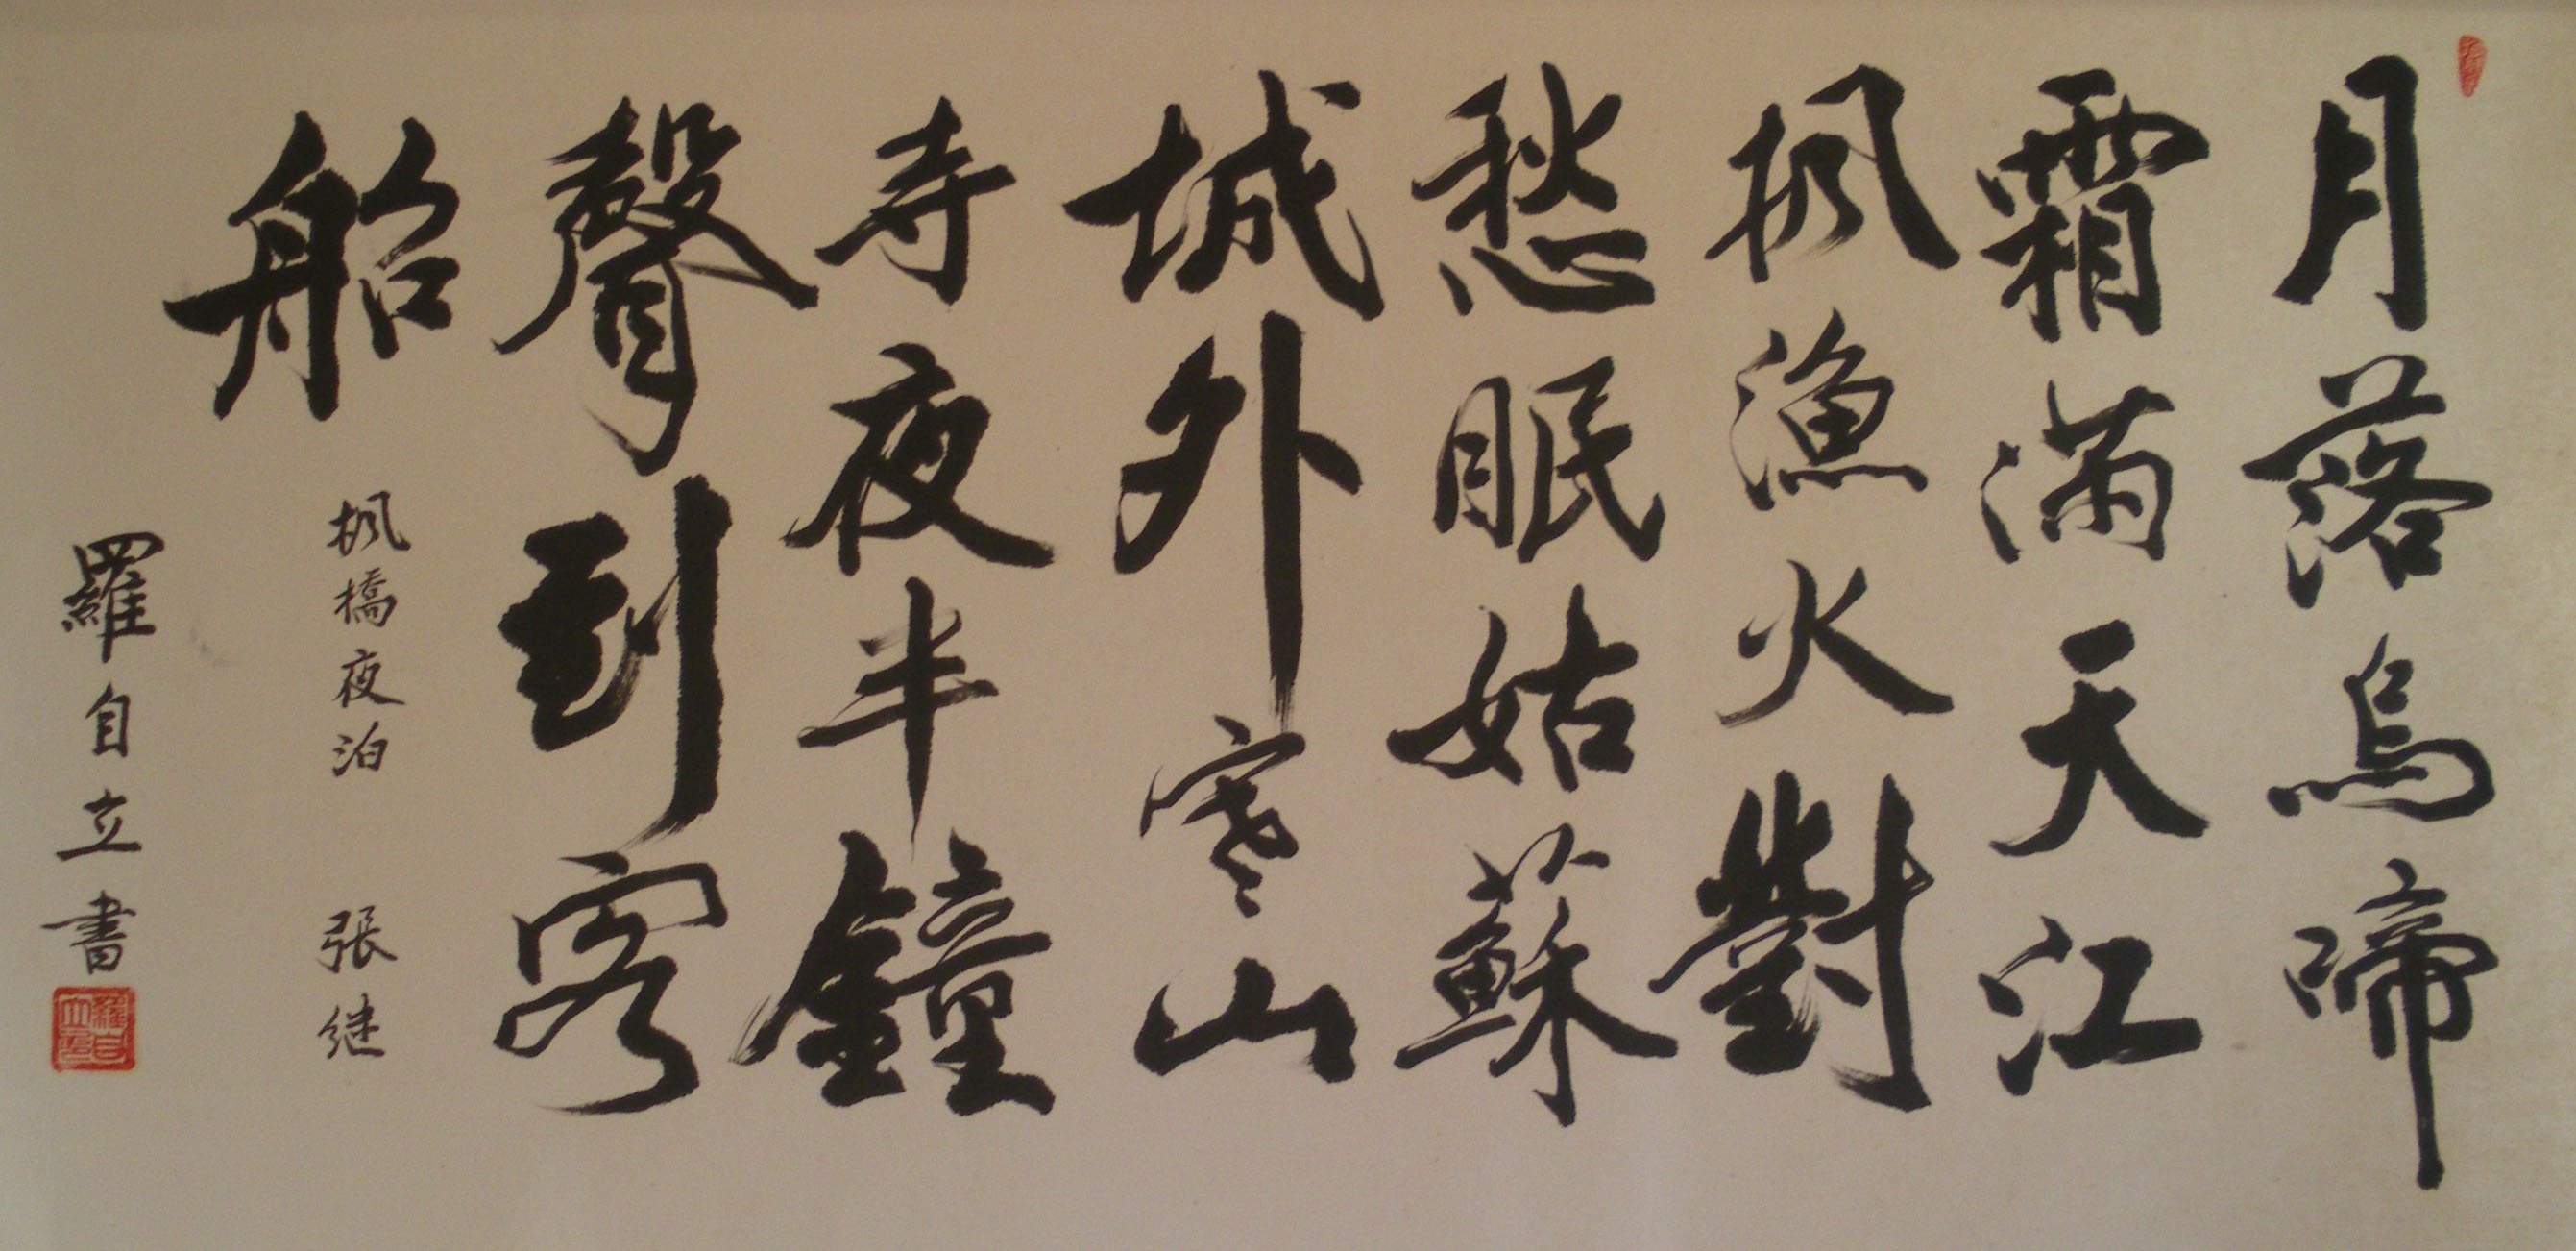 月落烏啼
霜满天江
枫漁火對
愁眠姑蘇
城外寒山
寺夜半鐘
聲到客
船
枫橋夜泊 張继
羅自立書